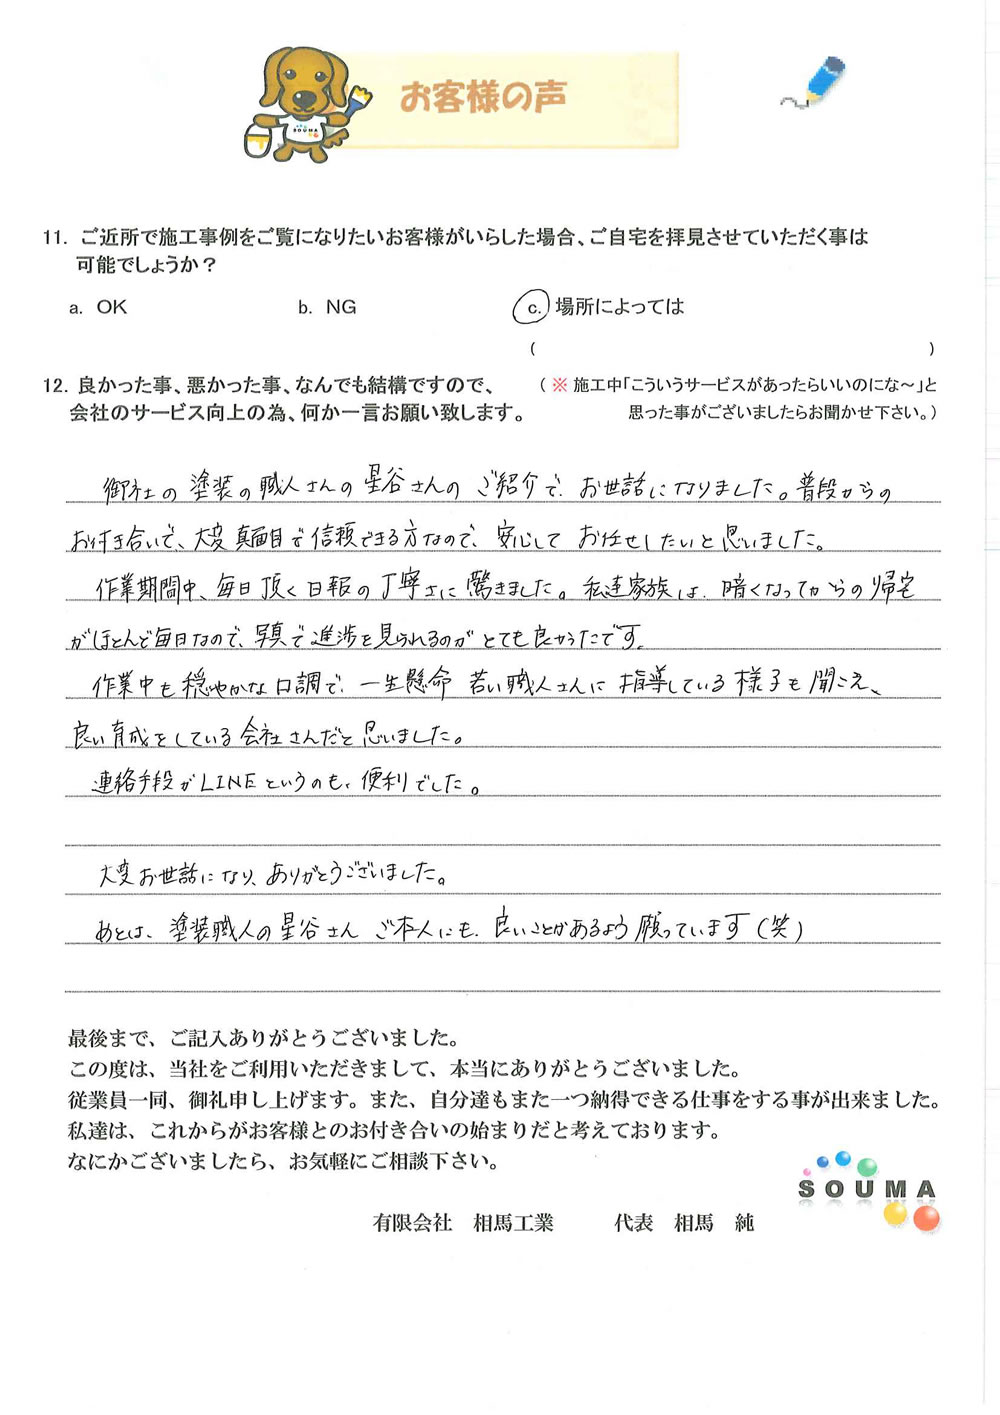 SOUMA
お客様の声
11. ご近所で施工事例をご覧になりたいお客様がいらした場合、ご自宅を拝見させていただく事は
可能でしょうか？
a. OK b. NG c. 場所によっては
( )
12. 良かった事、悪かった事、なんでも結構ですので、 (※ 施工中「こういうサービスがあったらいいのにな～」と
会社のサービス向上の為、何か一言お願い致します。 思った事がございましたらお聞かせ下さい。)
御社の塗装の職人さんの星谷さんのご紹介で、お世話になりました。普段からの
お付き合いで、大変真面目で信頼できる方なので、安心してお任せしたいと思いました。
作業期間中、毎日頂く日報の丁寧さに驚きました。私達家族は、暗くなってからの帰宅
がほとんど毎日なので、写真で進捗を見られるのがとても良かったです。
作業中も穏やかな口調で、一生懸命若い職人さんに指導している様子も聞こえ、
良い育成をしている会社さんだと思いました。
連絡手段がLINEというのも、便利でした。
大変お世話になり、ありがとうございました。
あとは、塗装職人の星谷さんご本人にも、良いことがあるよう願っています(笑)
最後まで、ご記入ありがとうございました。
この度は、当社をご利用いただきまして、本当にありがとうございました。
従業員一同、御礼申し上げます。また、自分達もまた一つ納得できる仕事をする事が出来ました。
私達は、これからがお客様とのお付き合いの始まりだと考えております。
なにかございましたら、お気軽にご相談下さい。
SOUMA
有限会社 相馬工業 代表 相馬 純